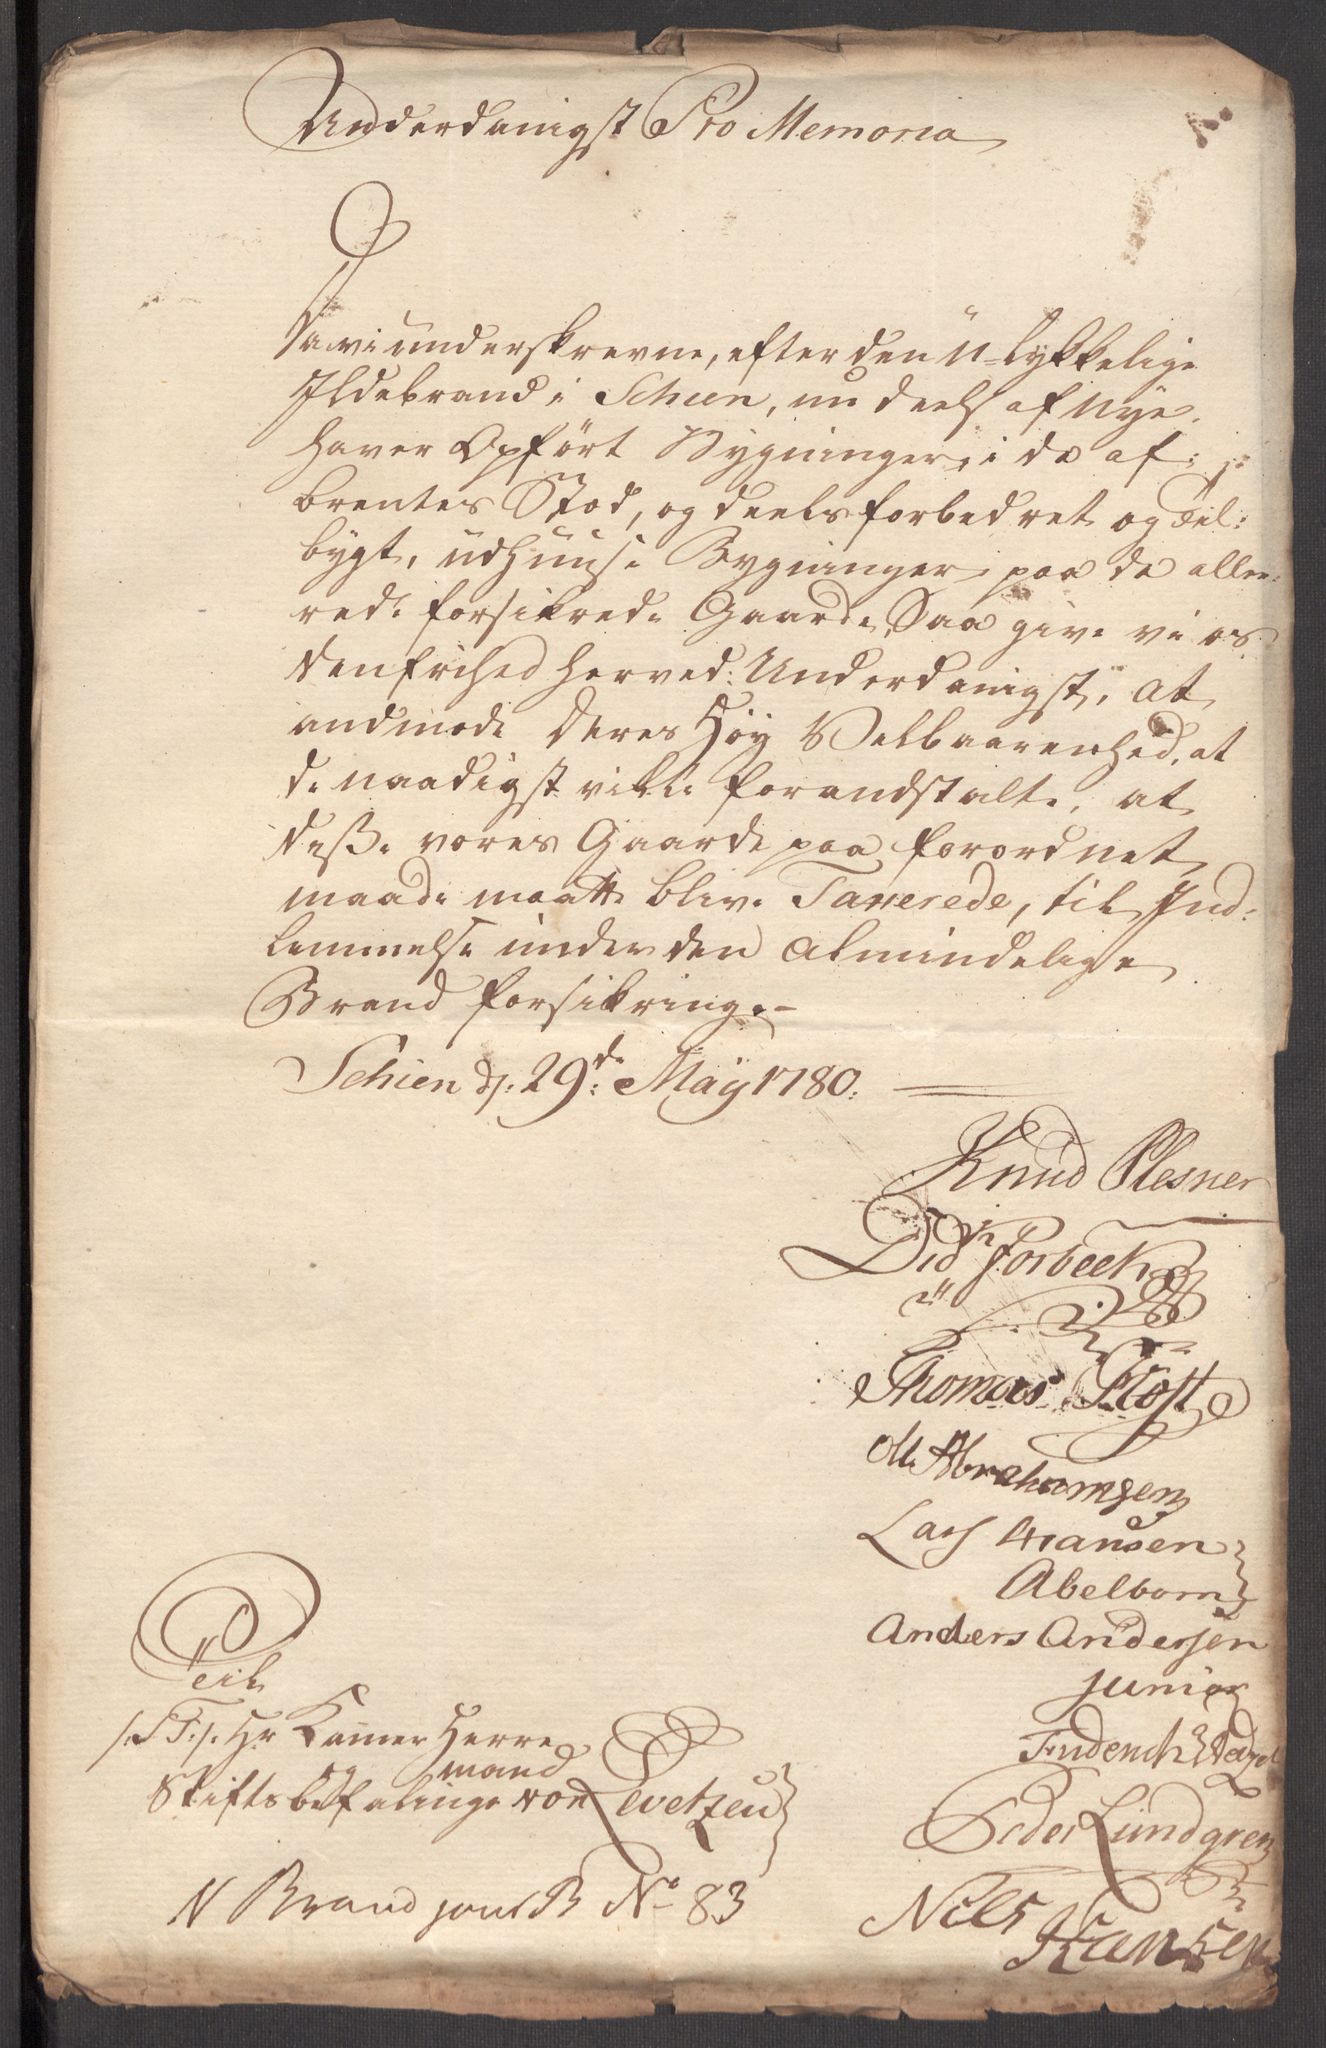 Underdanigst Pro Memoria
Da vi underskrevne, efter den U-lykkelige
Ildebrand i Schien, nu deels af nye
haver Opført Bygninger, i de af:
brentes Stæd, og deels forbedret og Til:
bygt, udhuuse Bygninger paa de alle:
rede forsikrede Gaarde, Saa give vi os
den frihed herved Underdanigst, at
andmode Deres Høy Velbaarenhed, at
de naadigst ville forandstalte, at
disse vores Gaarde paa forordnet
maade maatte blive Taxerede, til Ind:
lemmelse under den Almindelige
Brand forsikring.-
Schien d: 29de May 1780.
Knud Plesner
Did: v: Forbeck
Thomas Flost
Oll Abrahamsen
Lars Hansen
Abelborn
Anders Andersen
junior
Friderich
Peder Lundgren
Niels
Hansen
Till
/: S T:/ Hr Kamer Herre
og mand
Stiftsbefalings von Levetzeu
N Brand jour B No 83